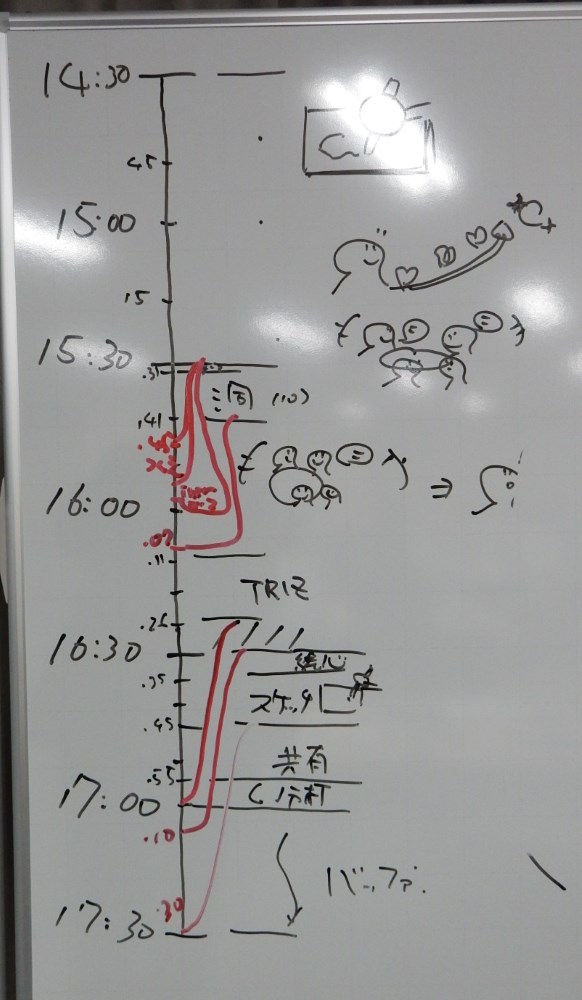 14:30
45
15:00
15
15:30
.35
(10)
.41
.45
16:00
.07
.11
TRIZ
.26
16:30
.35
スケッチ
.45
共有
.55
17:00
.10
バッファ
.30
17:30